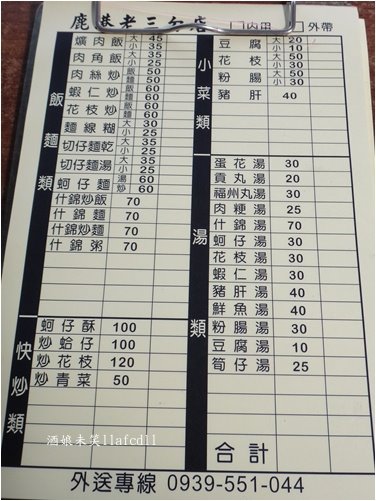 鹿港老三勺店 □內用 □外帶
飯麵類
爌肉飯 大 45 小 35
肉角飯 大 35 小 25
肉絲炒 飯 50 麵 50
蝦仁炒 飯 60 麵 60
花枝炒 飯 60 麵 60
麵線糊 大 30 小 25
切仔麵乾 大 35 小 25
切仔麵湯 大 35 小 25
蚵仔麵 湯 60 炒 60
什錦炒飯 70
什錦麵 70
什錦炒麵 70
什錦粥 70
快炒類
蚵仔酥 100
炒蛤仔 100
炒花枝 120
炒青菜 50
小菜類
豆腐 大 20 小 10
花枝 大 50 小 30
粉腸 大 50 小 30
豬肝 40
湯類
蛋花湯 30
貢丸湯 20
福州丸湯 30
肉粳湯 25
什錦湯 70
蚵仔湯 30
花枝湯 30
蝦仁湯 30
豬肝湯 40
鮮魚湯 40
粉腸湯 30
豆腐湯 10
筍仔湯 25
合計
酒娘未笑llafcdll
外送專線 0939-551-044